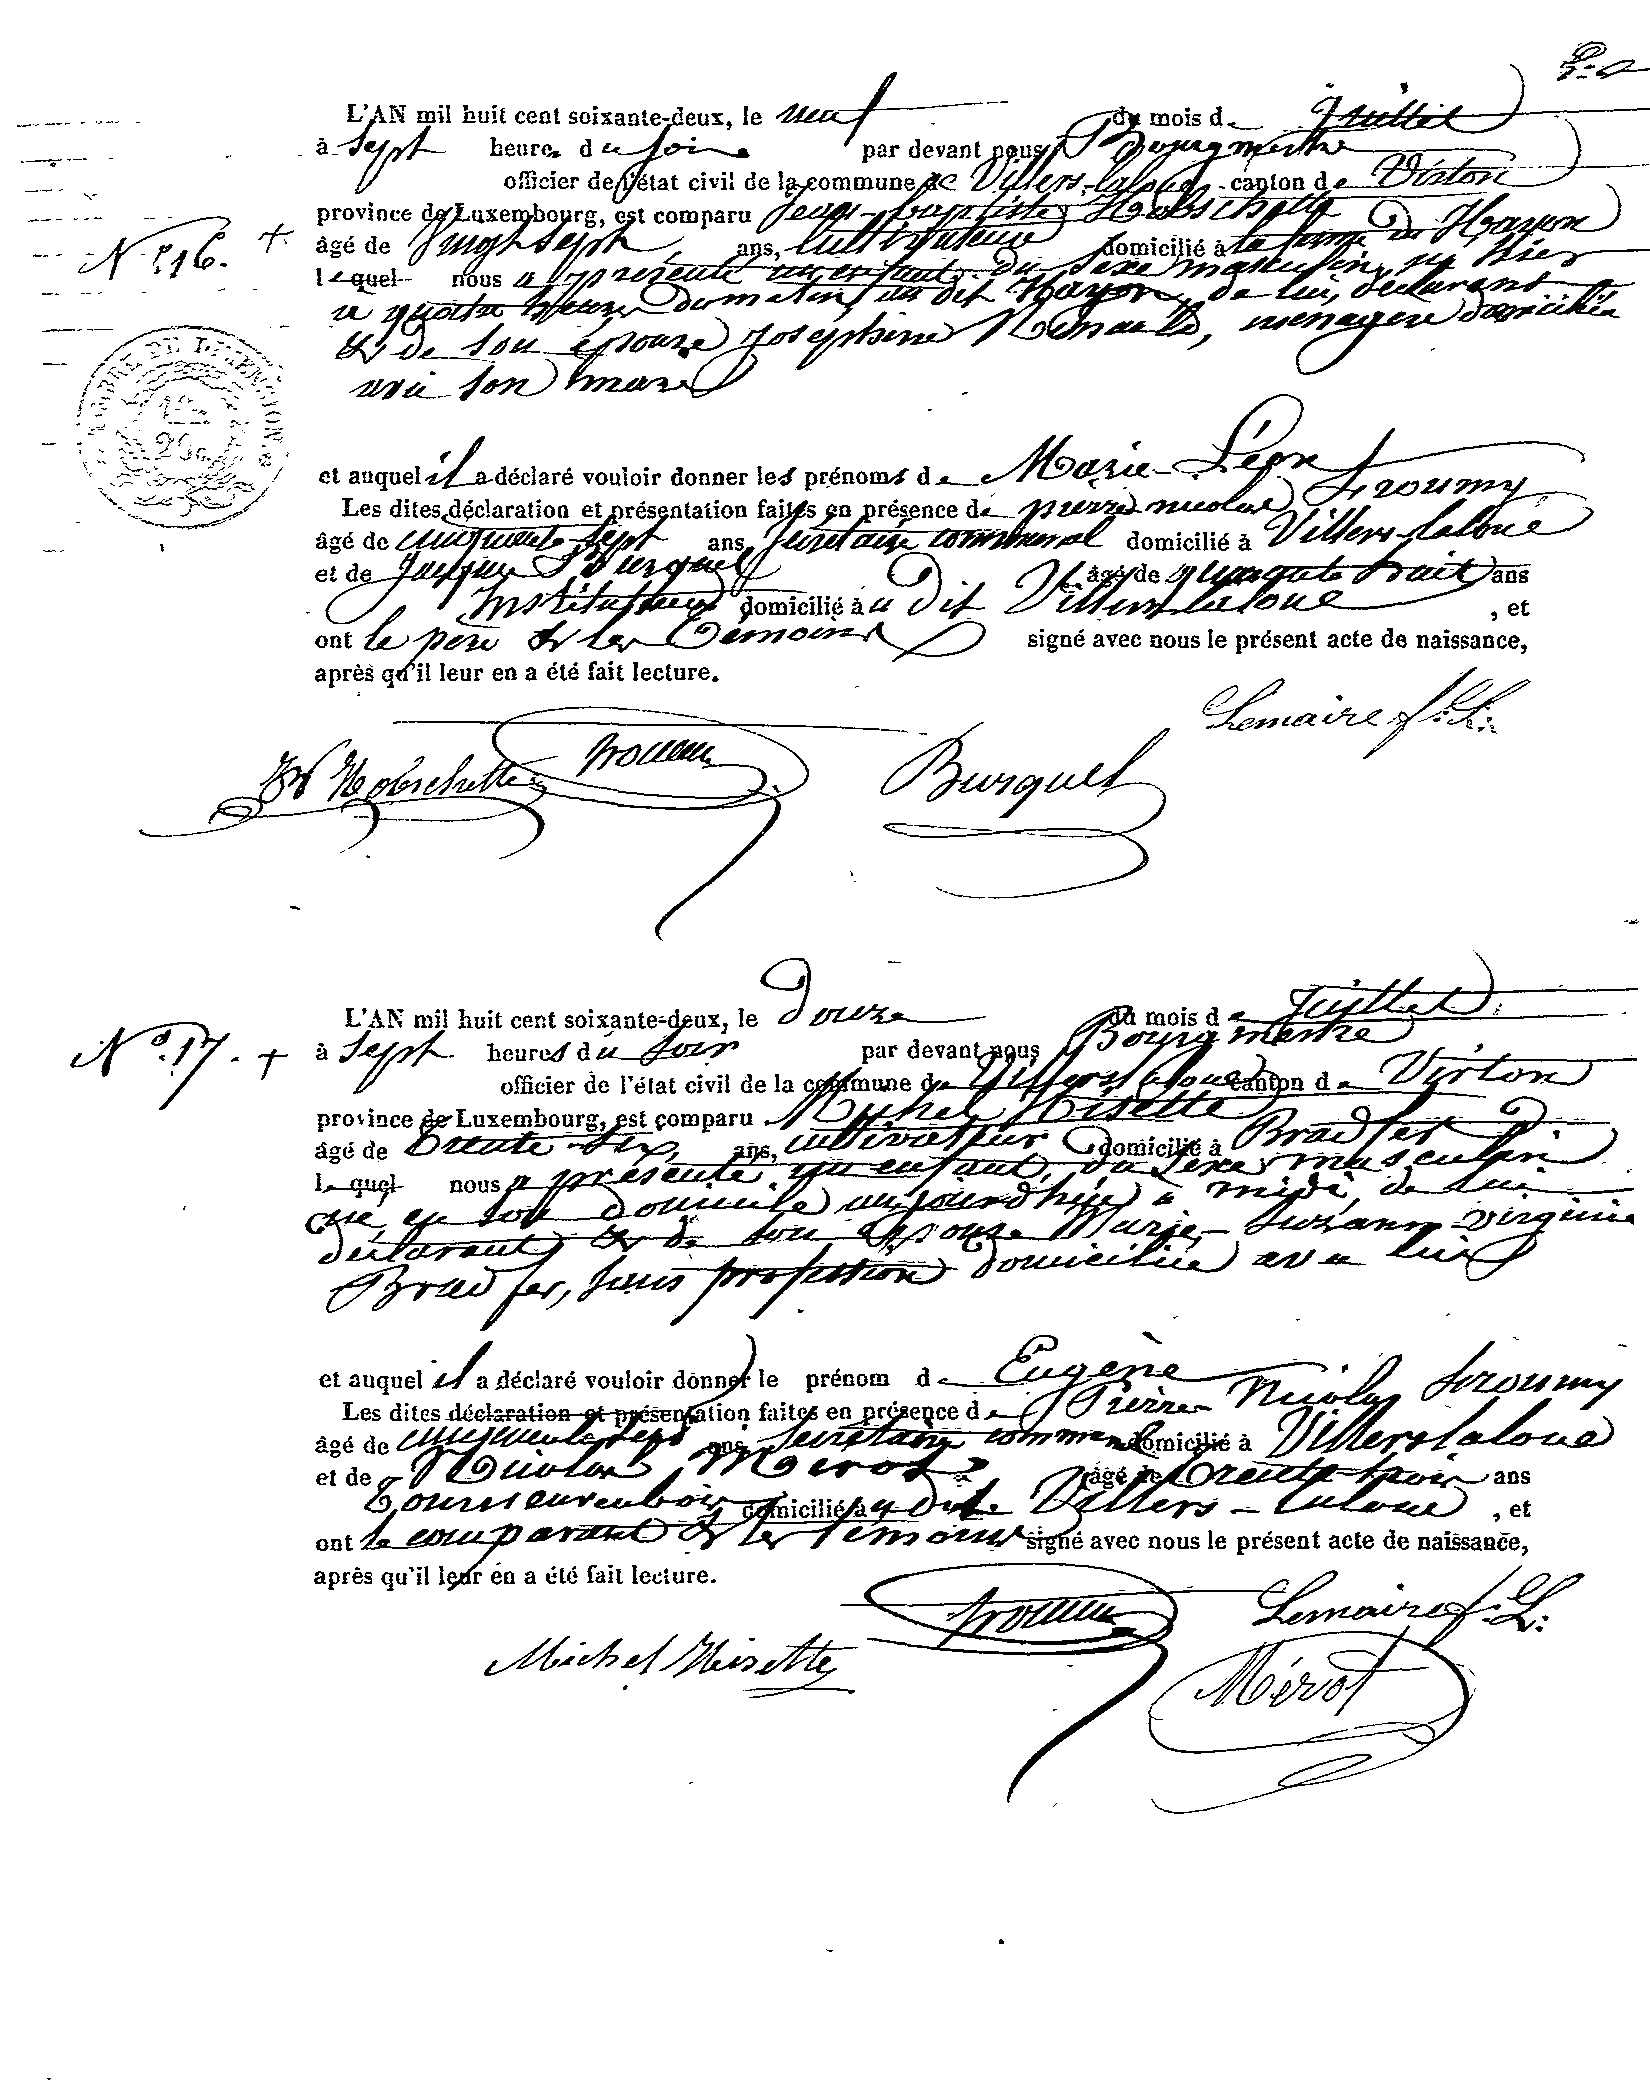 L'AN mil huit cent soixante-deux, le neuf du mois de Juillet
à Sept heures du soir par devant nous Bourgmestre
officier de l'état civil de la commune de Villers-laloue canton de Virton
N° 16. + province de Luxembourg, est comparu Jean-baptiste Hobschette
âgé de Vingt sept ans, Cultivateur domicilié à la ferme du Hayon
lequel nous a présenté un enfant du Sexe masculin, né hier
à quatre heures du matin, au dit Hayon, de lui, déclarant
& de son épouse Josephine Renauld, ménagère domiciliée
avec son mari
TIMBRE DE DIMENSION
et auquel il a déclaré vouloir donner les prénoms de Marie-Léon
Les dites déclaration et présentation faites en présence de pierre nicolas Froumy
âgé de cinquante sept ans, Secrétaire communal domicilié à Villers-laloue
et de Jacques Burquel âgé de quarante huit ans
Instituteur domicilié à u dit Villers-laloue , et
ont le père & les témoins signé avec nous le présent acte de naissance,
après qu'il leur en a été fait lecture.
Lemaire f.:L.:
JB Hobschette Burquel
L'AN mil huit cent soixante-deux, le Douze du mois de Juillet
N° 17. + à Sept heures du Soir par devant nous Bourgmestre
officier de l'état civil de la commune de Villers laloue canton de Virton
province de Luxembourg, est comparu Michel Hisette
âgé de trente-six, ans, cultivateur domicilié à Bradfer
lequel nous a présenté un enfant, du Sexe masculin
né, en son domicile aujourd'hui à midi, de lui
déclarant & de son épouse Marie-Suzanne-Virginie
Bradfer, sans profession domiciliée avec lui
et auquel il a déclaré vouloir donner le prénom de Eugène
Les dites déclaration et présentation faites en présence de Pierre Nicolas Froumy
âgé de cinquante sept ans Secrétaire communal domicilié à Villers laloue
et de Nicolas Mérot âgé de trente trois ans
Tourneur en bois domicilié à u dit Villers-laloue , et
ont le comparant & les témoins signé avec nous le présent acte de naissance,
après qu'il leur en a été fait lecture.
Lemaire f.:L.:
Michel Hisette Mérot